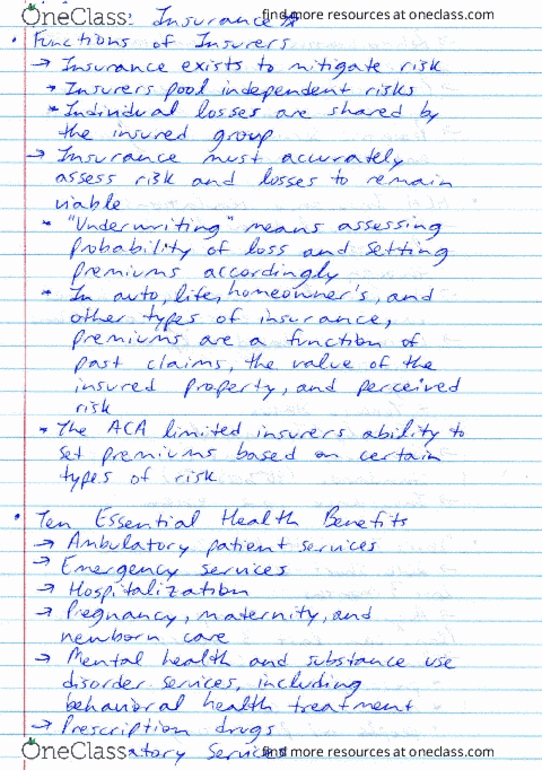 OneClass
find more resources at oneclass.com
Insurance
• Functions of Insurers
→ Insurance exists to mitigate risk
→ Insurers pool independent risks
* Individual losses are shared by
the insured group
→ Insurance must accurately
assess risk and losses to remain
viable
* "Underwriting" means assessing
probability of loss and setting
premiums accordingly
* In auto, life, homeowner's, and
other types of insurance,
premiums are a function of
past claims, the value of the
insured property, and perceived
risk
* The ACA limited insurers ability to
set premiums based on certain
types of risk
• Ten Essential Health Benefits
→ Ambulatory patient services
→ Emergency services
→ Hospitalization
→ Pregnancy, maternity, and
newborn care
→ Mental health and substance use
disorder services, including
behavioral health treatment
→ Prescription drugs
atory Services
OneClass
find more resources at oneclass.com